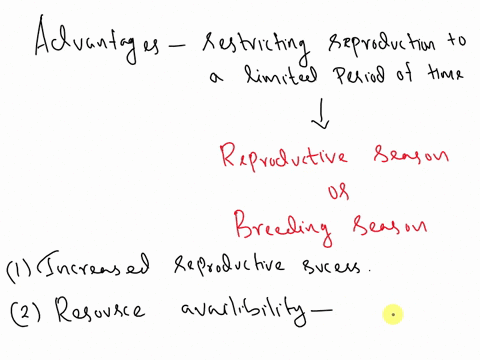 Advantages - restricting reproduction to
a limited period of time
↓
Reproductive season
or
Breeding season
(1) Increased reproductive sucess.
(2) Resource availibility -